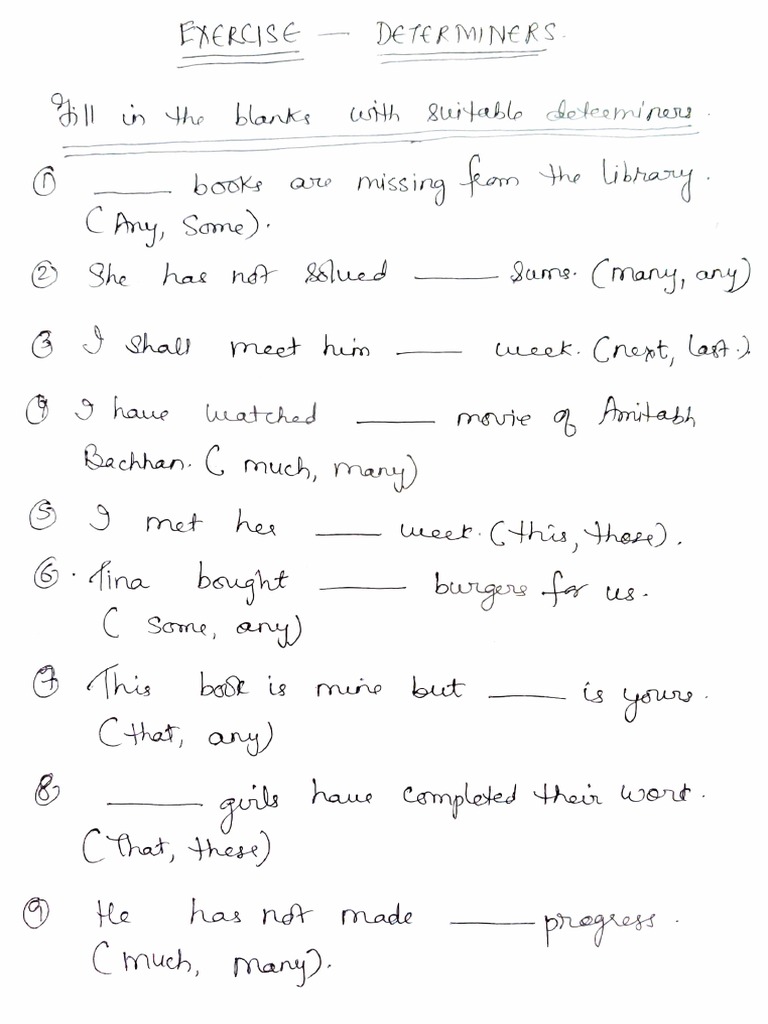 EXERCISE — DETERMINERS.
Fill in the blanks with suitable determiners.
① ____ books are missing from the library.
(Any, Some).
② She has not solved ____ sums. (many, any)
③ I shall meet him ____ week. (next, last.)
④ I have watched ____ movie of Amitabh
Bachhan. (much, many)
⑤ I met her ____ week. (this, those).
⑥. Tina bought ____ burgers for us.
(some, any)
⑦ This book is mine but ____ is yours.
(that, any)
⑧ ____ girls have completed their work.
(That, these)
⑨ He has not made ____ progress.
(much, many).